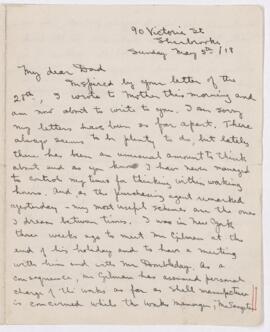 90 Victoria St
Sherbrooke
Sunday May 5th/18
My dear Dad
Inspired by your letter of the
28th, I wrote to Mother this morning and
am now about to write to you. I am sorry
my letters have been so far apart. There
always seems to be plenty to do, but lately
there has been an unusual amount to think
about and as you know I have never managed
to my time for thinking within working
hours. And, as the purchasing agent remarked
yesterday - my most useful are the ones
I dream between times. I was in New York
three weeks ago to meet Mr Gilman at the
end of his holiday and to have a meeting
with him and with Mr Doubleday. As a
consequence, Mr Gilman has assumed personal
charge of the works as far as shell manufacture
is concerned while the works manager, Mr